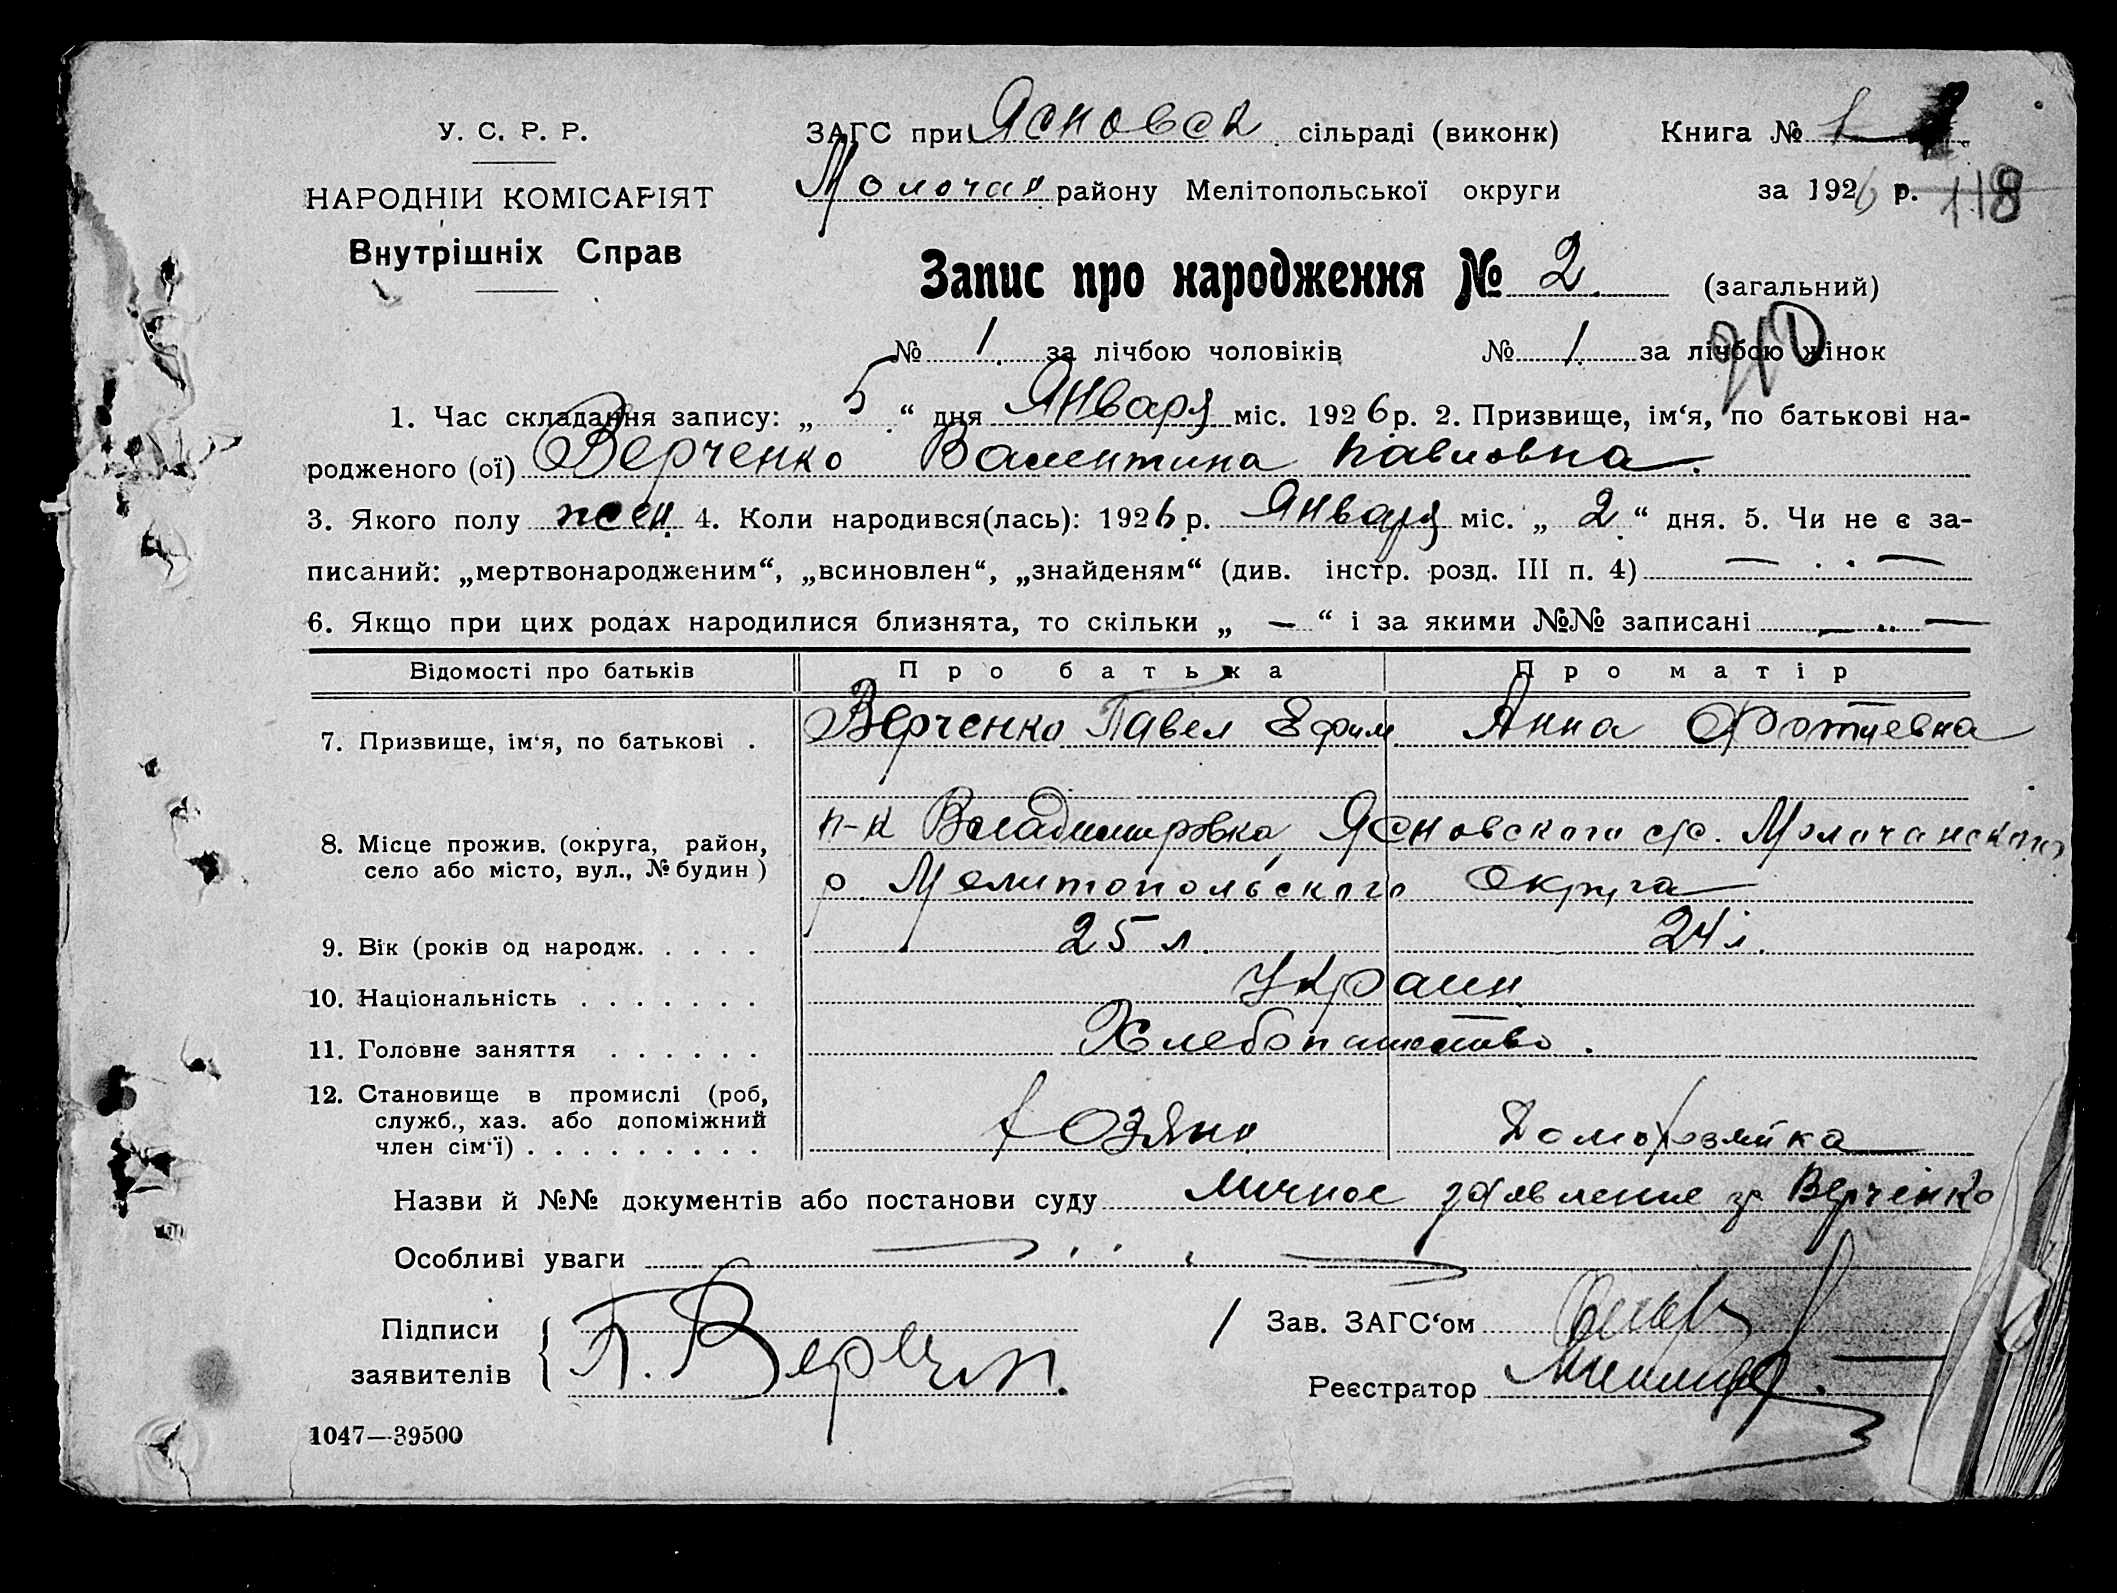 У. С. Р. Р.
НАРОДНІЙ КОМІСАРІЯТ
Внутрішніх Справ
ЗАГС при Ясновск сільраді (виконк) Книга № 1
Молочан району Мелітопольської округи за 1926 р. 118
Запис про народження № 2. (загальний)
№ 1. за лічбою чоловіків № 1. за лічбою жінок
1. Час складання запису: „ 5 “ дня Января міс. 1926 р. 2. Призвище, ім‘я, по батькові на-
родженого (ої) Верченко Валентина Павловна.
3. Якого полу жен. 4. Коли народився(лась): 1926 р. Января міс. „ 2 “ дня. 5. Чи не є за-
писаний: „мертвонародженим“, „всиновлен“, „знайденям“ (див. інстр. розд. III п. 4)
6. Якщо при цих родах народилися близнята, то скільки „ — “ і за якими №№ записані
Відомості про батьків Про батька Про матір
7. Призвище, ім‘я, по батькові . Верченко Павел Ефим Анна Фотиевна
8. Місце прожив. (округа, район, п-к Владимировка, Ясновского с/с. Молочанского
село або місто, вул., № будин ) р. Мелитопольского Округа
9. Вік (років од народж. . . . . 25 л. 24 л.
10. Національність . . . . . . . Украин
11. Головне заняття . . . . . . Хлебопашество.
12. Становище в промислі (роб,
служб., хаз. або допоміжний
член сім‘ї) . . . . . . . . . Хозяин Домохозяйка
Назви й №№ документів або постанови суду Личное заявление гр Верченко
Особливі уваги
Підписи
заявителів
П. Верчен.
Зав. ЗАГС‘ом
Реєстратор
1047—39500